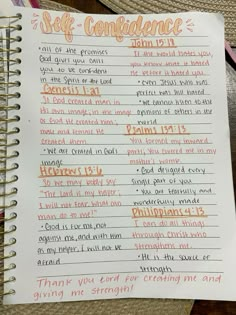 Self-Confidence
• all of the promises
God gives you calls
you to be confident
in the Spirit of the Lord
Genesis 1:27
So God created man in
His own image, in the image
of God He created him;
male and female He
created them.
• We are created in God's
image
Hebrews 13:6
So we may boldly say
"The Lord is my helper;
I will not fear. What can
man do to me?"
• God is for me, not
against me, and with Him
as my helper, I will not be
afraid
John 15:18
If the world hates you,
you know that it hated
me before it hated you.
• even Jesus who was
perfect was still hated
• We cannot listen to the
opinions of others in the
world
Psalms 139:13
You formed my inward
parts; You covered me in my
mother's womb.
• God designed every
single part of you
• You are fearfully and
wonderfully made
Philippians 4:13
I can do all things
through Christ who
strengthens me.
• He is the source of
strength
Thank you Lord for creating me and
giving me strength!